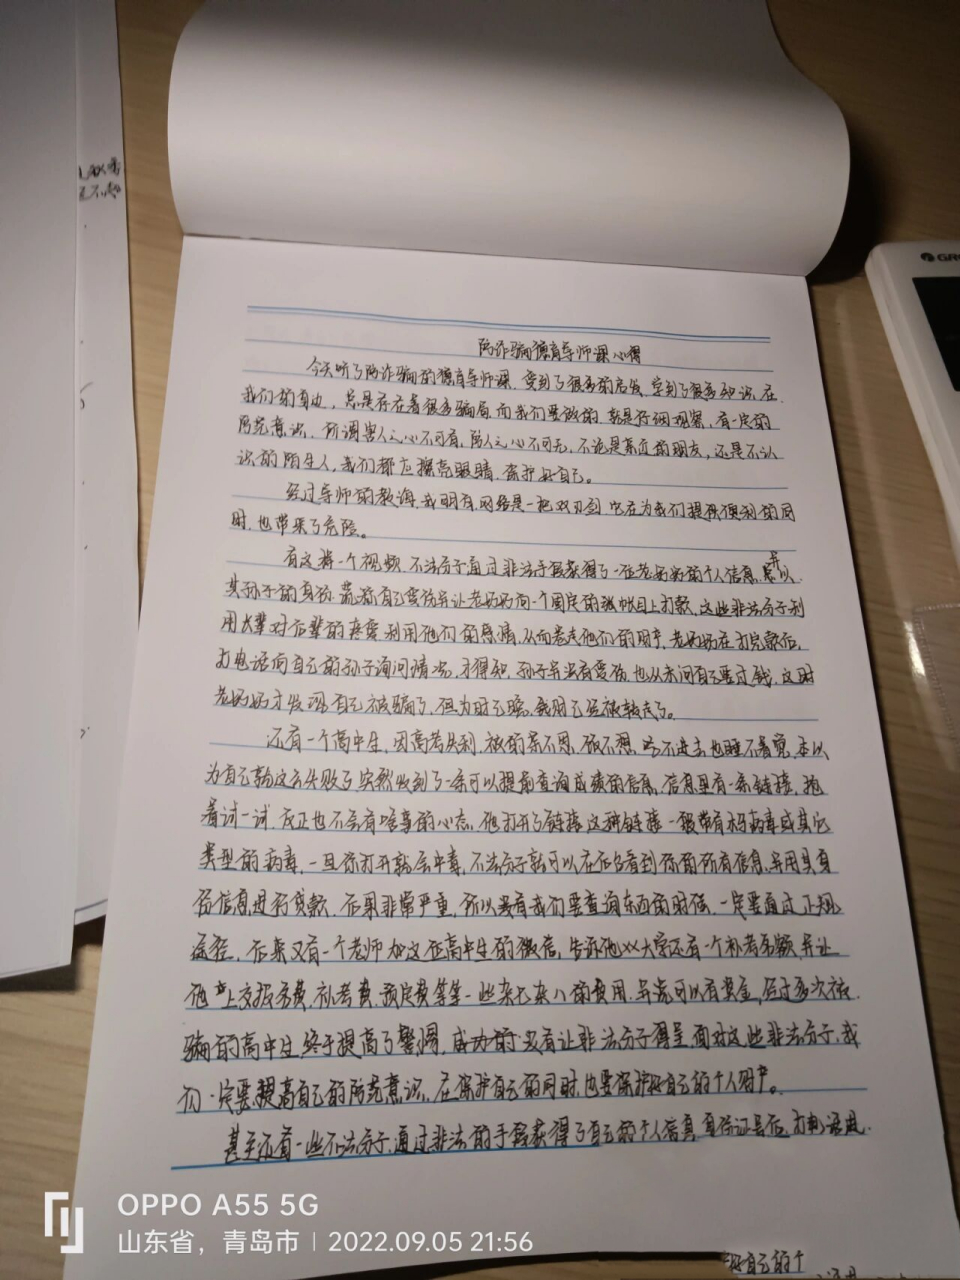 防诈骗德育导师课心得
今天听了防诈骗的德育导师课,受到了很多的启发,学到了很多知识,在
我们的身边,总是存在着很多骗局,而我们要做的,就是仔细观察,有一定的
防范意识,所谓害人之心不可有,防人之心不可无,不论是亲近的朋友,还是不认
识的陌生人,我们都应擦亮眼睛,保护好自己。
经过导师的教诲,我明白,网络是一把双刃剑,它在为我们提供便利的同
时,也带来了危险。
有这样一个视频,不法分子通过非法手段获得了一位老奶奶的个人信息,并以
其孙子的身份,谎称自己受伤并让老奶奶向一个固定的账户上打款,这些非法分子利
用长辈对后辈的疼爱,利用他们的感情,从而卷走他们的财产,老奶奶在打完款后,
打电话向自己的孙子询问情况,才得知,孙子并没有受伤,也从未问自己要过钱,这时
老奶奶才发现自己被骗了,但为时已晚,钱财已经被转走了。
还有一个高中生,因高考失利,被的茶不思,饭不想,吃不进去也睡不着觉,本以
为自己就这么失败了,突然收到了一条可以提前查询成绩的信息,信息里有一条链接,抱
着试一试,反正也不会有啥事的心态,他打开了链接,这种链接一般带有木马病毒或其它
类型的病毒,一旦你打开就会中毒,不法分子就可以在后台看到你的所有信息,并用其身
份信息进行贷款,后果非常严重,所以没有我们要查询东西的时候,一定要通过正规
途径,后来又有一个老师加这位高中生的微信,告诉他XX大学还有一个补考名额,并让
他上交报名费,补考费,预定费等等一些杂七杂八的费用,并说可以有奖金,经过多次被
骗的高中生终于提高了警惕,成功的没有让非法分子得逞,面对这些非法分子,我
们一定要提高自己的防范意识,在保护自己的同时,也要保护好自己的个人财产。
甚至还有一些不法分子,通过非法的手段获得了自己的个人信息,身份证号后,打电话进
好自己的个
GR
OPPO A55 5G
山东省,青岛市 | 2022.09.05 21:56